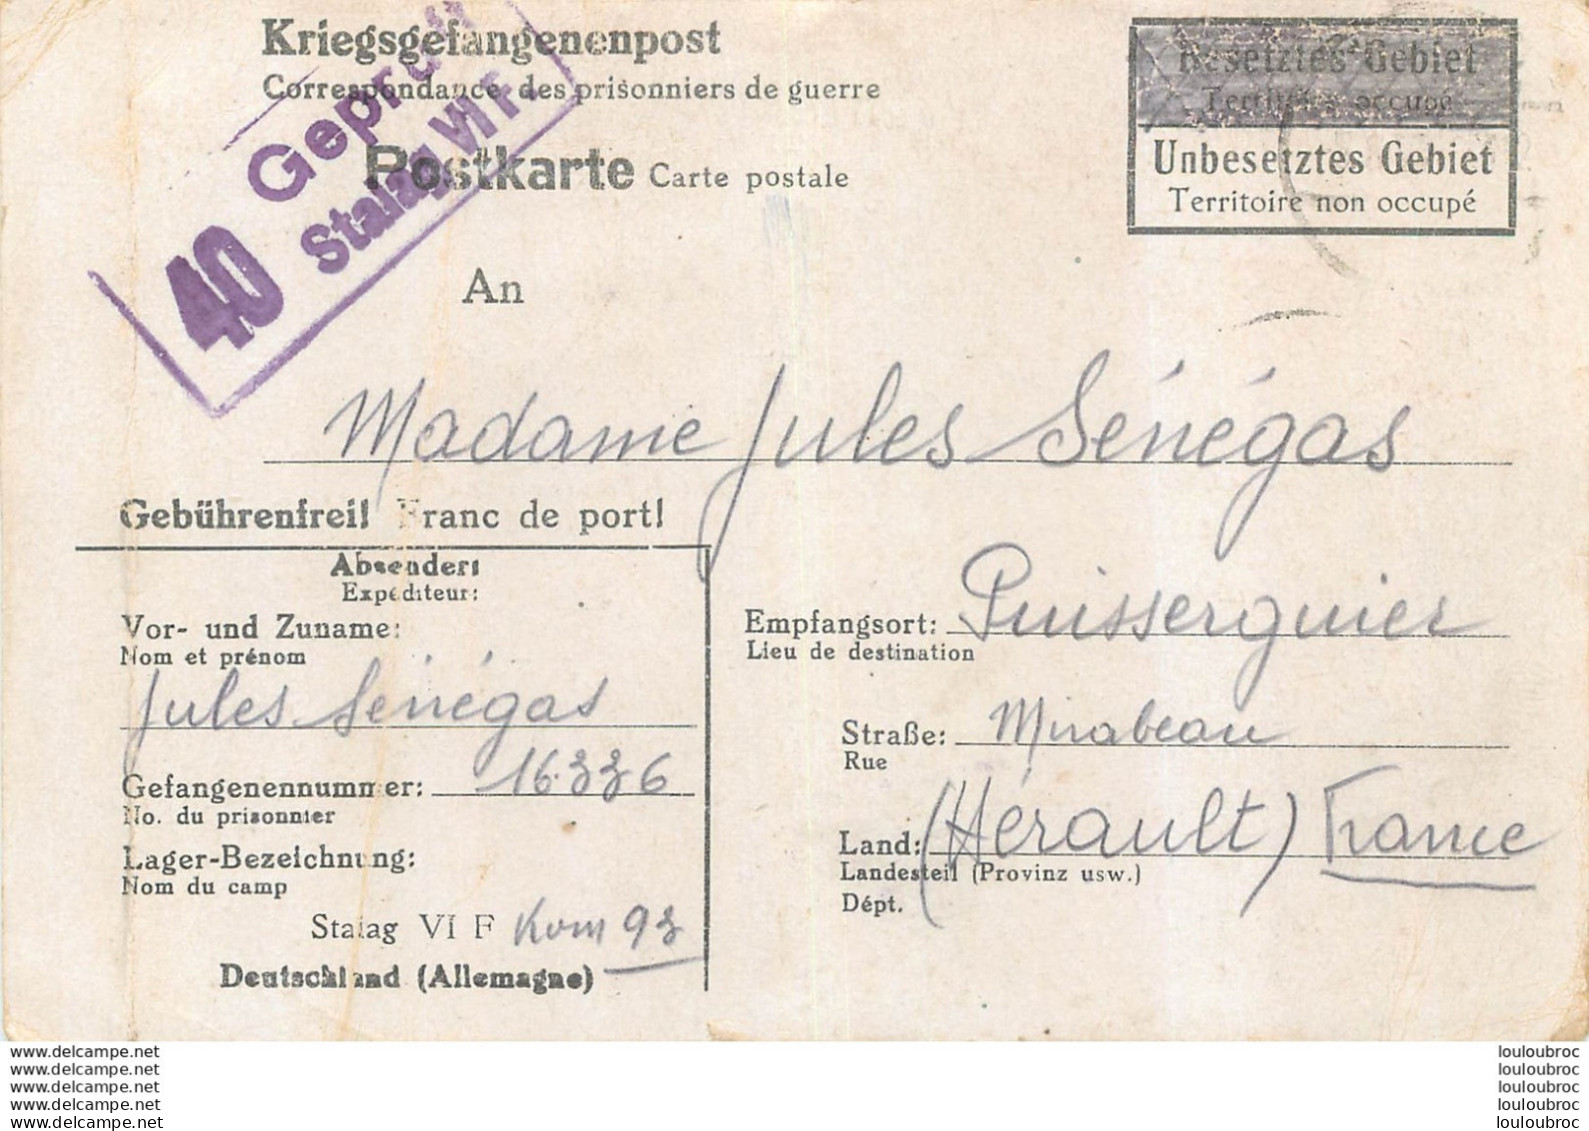 Kriegsgefangenenpost
Correspondance des prisonniers de guerre
Postkarte Carte postale
Geprüft
Stalag VI F.
40
Besetztes Gebiet
Territoire occupé
Unbesetztes Gebiet
Territoire non occupé
An
Madame Jules Sénégas
Gebührenfrei! Franc de port!
Absender:
Expéditeur:
Vor- und Zuname:
Nom et prénom
Jules Sénégas
Gefangenennummer: 16.336
No. du prisonnier
Lager-Bezeichnung:
Nom du camp
Stalag VI F Kom 93
Deutschland (Allemagne)
Empfangsort: Puisserguier
Lieu de destination
Straße: Mirabeau
Rue
Land: (Hérault) France
Landesteil (Provinz usw.)
Dépt.
www.delcampe.net
www.delcampe.net
www.delcampe.net
www.delcampe.net
www.delcampe.net
louloubroc
louloubroc
louloubroc
louloubroc
louloubroc